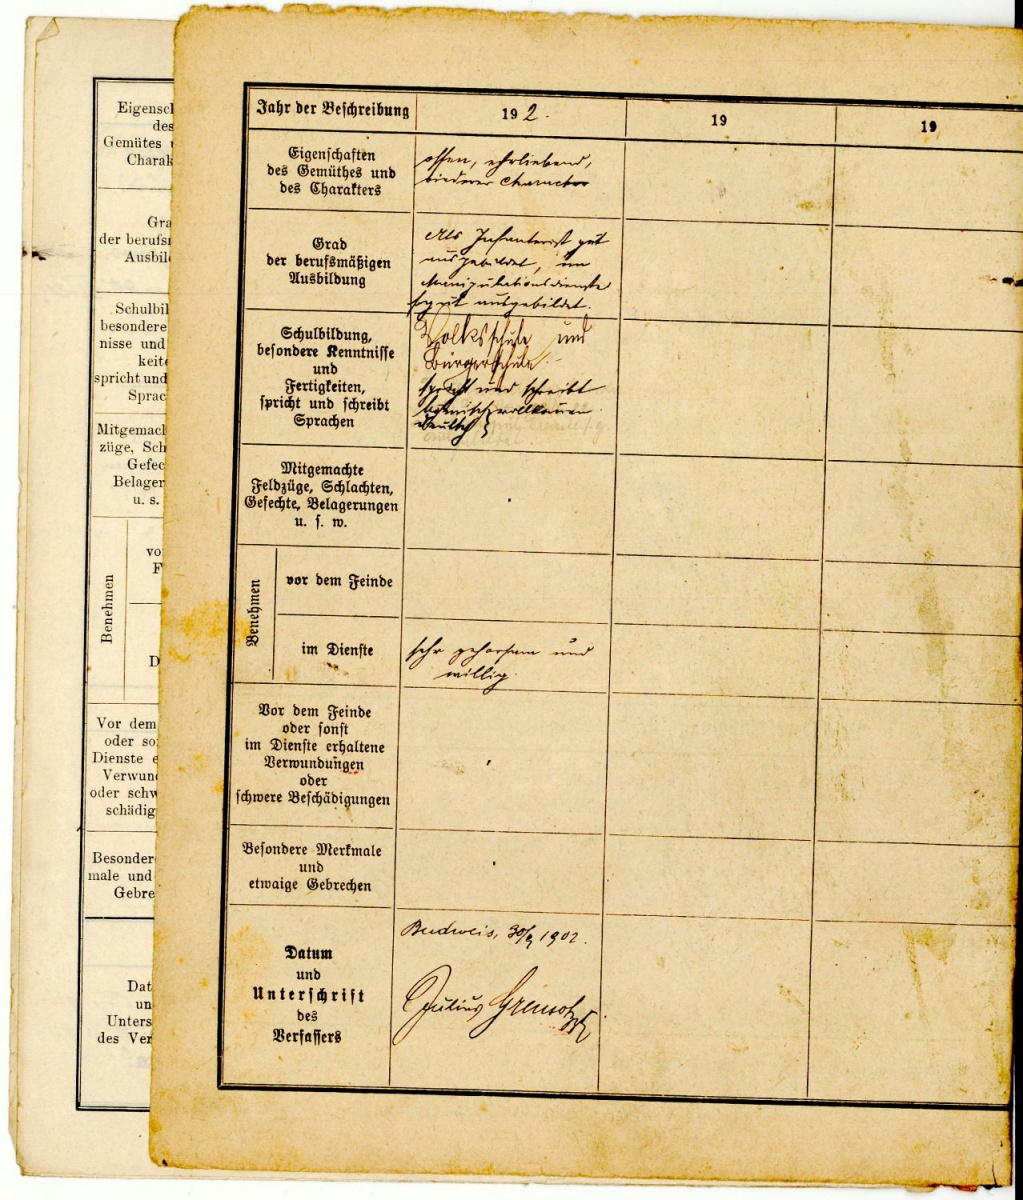 Eigensch
des
Gemütes
Charak
Gra
der berufsm
Ausbil
Schulbil
besondere
nisse und
keite
spricht und
Sprac
Mitgemach
züge, Sch
Gefec
Belager
u. s.
Benehmen
vo
F
D
Vor dem
oder so
Dienste e
Verwun
oder schw
schädig
Besondere
male und
Gebre
Dat
un
Unters
des Ver
Jahr der Beschreibung
1902.
19
19
Eigenschaften
des Gemüthes und
des Charakters
offen, ehrliebend,
biederer Charakter
Grad
der berufsmäßigen
Ausbildung
Als Infanterist gut
ausgebildet, im
Manipulationsdienste
s. gut ausgebildet.
Schulbildung,
besondere Kenntnisse
und
Fertigkeiten,
spricht und schreibt
Sprachen
Volksschule und
Bürgerschule
spricht und schreibt
böhmisch vollkommen
deutsch
Mitgemachte
Feldzüge, Schlachten,
Gefechte, Belagerungen
u. s. w.
Benehmen
vor dem Feinde
im Dienste
sehr gehorsam und
willig.
Vor dem Feinde
oder sonst
im Dienste erhaltene
Verwundungen
oder
schwere Beschädigungen
Besondere Merkmale
und
etwaige Gebrechen
Datum
und
Unterschrift
des
Verfassers
Budweis, 30/9 1902.
Julius